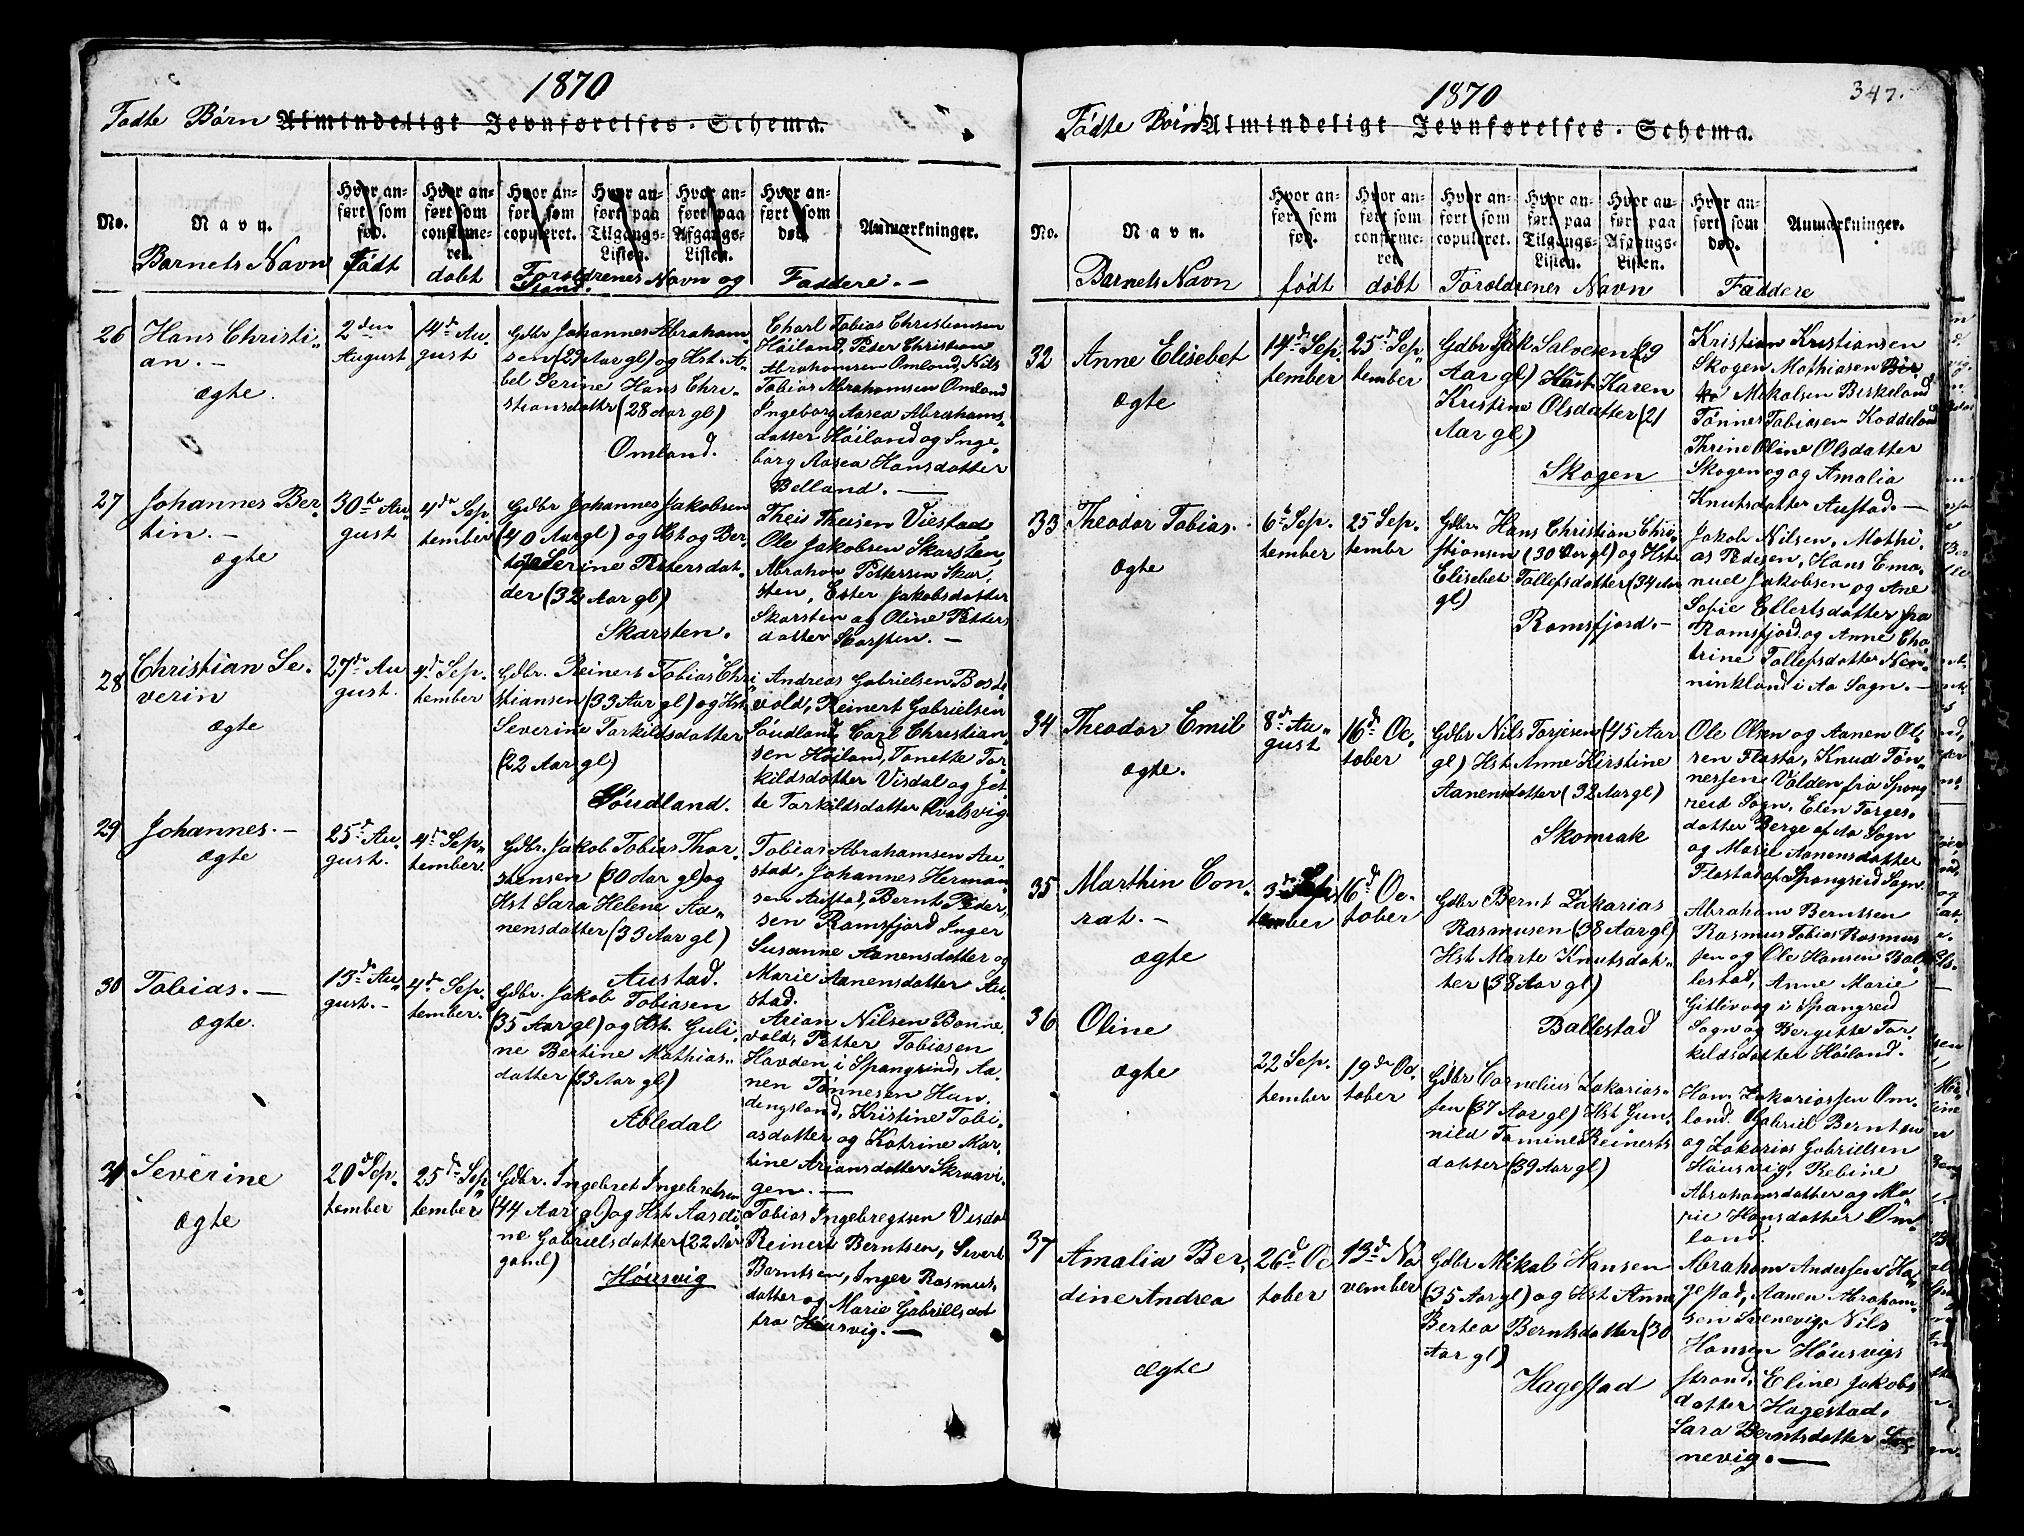 1870
Fødte Børn Almindeligt Jevnførelses-Schema.
No.
Navn.
Hvor anført som fød.
Hvor anført som confirmeret.
Hvor anført som copuleret.
Hvor anført paa Tilgangs-Listen.
Hvor anført paa Afgangs-Listen.
Hvor anført som død.
Anmærkninger.
Barnets Navn
Født
døbt
Forældrenes Navn og
Stand.
Faddere.
26
Hans Christi-
an.
ægte.
2den
August
14de Au
gust
Gdbr Johannes Abraham-
sen (29 Aar gl) og Hst. A-
bel Serine Hans Chri-
stiansdatter (28 Aar gl)
Omland.
Charl Tobias Christiansen
Høiland, Peder Christian
Abrahamsen Omland, Nils
Tobias Abrahamsen Omland
Ingeborg Aasea Abrahams-
datter Høiland og Inge-
borg Aasea Hansdatter
Belland.
27
Johannes Ber-
tin.
ægte
30te Au
gust
4de Sep.
tember
Gdbr Johannes Jakobsen
(40 Aar gl) og Hst og Ber-
Serine Petersdat-
der (32 Aar gl)
Skarsten.
Theis Theisen Viestad
Ole Jakobsen Skarsten,
Abraham Pettersen Skar-
sten, Ester Jakobsdatter
Skarsten og Oline Petter
datter Skarsten.
28
Christian Se-
verin
ægte
27de Au
gust.
4de Sep.
tember
Gdbr. Reinert Tobias Chri
stiansen (33 Aar gl) og Hst.
Severine Torkildsdatter
(22 Aar gl)
Søudland.
Andreas Gabrielsen Bosde
vold, Reinert Gabrielsen
Søudland, Carl Christian-
sen Høiland, Tonette Tor
kildsdatter Visdal og Jet-
te Torkildsdatter Qvalsvig
29
Johannes.
ægte
25de Au-
gust.
4de Sep-
tember.
Gdbr. Jakob Tobias Thor-
stensen (30 Aar gl) og
Hst Sara Helene Aa-
nensdatter (33 Aar gl)
Austad.
Tobias Abrahamsen Au-
stad, Johannes Herman
sen Austad, Bernt Peder-
sen Ramsfjord Inger
Susanne Aanensdatter og
Marie Aanensdatter Au-
stad.
30
Tobias.
ægte.
13de Au-
gust.
4de Sep.
tember.
Gdbr. Jakob Tobiasen
(35 Aar gl) og Hst. Guli-
ne Bertine Mathias-
datter (33 Aar gl)
Abledal
Arian Nilsen Bonne-
vold, Petter Tobiasen
Havden i Spangreid, Aa-
nen Tønnesen Hun-
dingsland, Kristine Tobi-
asdatter og Katrine Mar-
tine Ariansdatter Skraavi-
gen.
31
Severine
ægte
20de Sep.
tember
25de Sep
tember
Gdbr. Ingebret Ingebretsen
(44 Aar gl) og Hst Aasdi
ne Gabrielsdatter (22 Aar
gamel)
Høusvig
Tobias Ingebregtsen Visdal
Reinert Berntsen, Sivert
Berntsen, Inger Rasmus-
datter og Marie Gabrielsdat
fra Høusvig.
1870
347.
Fødte Børn Almindeligt Jevnførelses-Schema.
No.
Navn.
Hvor anført som fød.
Hvor anført som confirmeret.
Hvor anført som copuleret.
Hvor anført paa Tilgangs-Listen.
Hvor anført paa Afgangs-Listen.
Hvor anført som død.
Anmærkninger.
Barnets Navn
født
døbt
Forældrenes Navn
Faddere
32
Anne Elisebet
ægte
14de Sep
tember
25de Sep
tember
Gdbr Salvesen (29
Aar gl) Hst Karen
Kristine Olsdatter (21
Aar gl)
Skogen
Kristian Kristiansen
Skogen Mathiasen
Mikalsen Birkeland
Tønnes Tobiasen Koddeland
Thrine Oline Olsdatter
Skogen og Amalia
Knutsdatter Austad.
33
Theodor Tobias.
ægte
6te Sep.
tember
25 Sep.
tembr
Gdbr. Hans Christian Chri-
stiansen (30 Aar gl) og Hst
Elisebet Tollefsdatter (34 Aar
gl)
Ramsfjord.
Jakob Nilsen, Mathi-
as Pedesen, Hans Ema-
nuel Jakobsen og Ane
Sofie Ellertsdatter fra
Ramsfjord og Anne Cha-
trine Tollefsdatter Nen-
ninkland i Aa Sogn.
34
Theodor Emil
ægte.
8de Au-
gust
16de Oc-
tober
Gdbr Nils Torjesen (45 Aar
gl) Hst Anne Kirstine
Aanensdatter (32 Aar gl)
Skomrak
Ole Olsen og Aanen Ol-
sen Flasta, Knud Tøn-
nesen Valden fra Spang
reid Sogn, Elen Torges-
datter Berge af Aa Sogn
og Marie Aanensdatter
Flastad af Spangreid Sogn.
35
Marthin Con-
rat.
ægte
3de Sep
tember
16de Oc-
tober
Gdbr Bernt Zakarias
Rasmusen (38 Aar gl)
Hst Marte Knutsdat-
ter (38 Aar gl)
Ballestad
Abraham Berntsen
Rasmus Tobias Rasmus
sen og Ole Hansen Bal-
lestad, Anne Marie
Gitlevaag i Spangreid
Sogn og Bergitte Tor-
kildsdatter Høiland.
36
Oline
ægte
22 Sep.
tember
19de Oc-
tober
Gdbr Cornelius Zakarias-
sen (37 Aar gl) Hst Gun-
nild Tomine Reinerts
datter (39 Aar gl)
Hans Zakariassen Om-
land. Gabriel Berntsen
og Zakarias Gabrielsen
Høusvig, Rebine
Abrahamsdatter og Ma-
rie Hansdatter Om-
land
37
Amalia Ber-
dine Andrea
ægte
26de Oc
tober
13de No
vember
Gdbr Mikal Hansen
(35 Aar gl) og Hst Anne
Bertea Berntsdatter (30
Aar gl)
Hagestad
Abraham Andersen Ha-
gestad, Aanen Abraham-
sen Svenevig, Nils
Hansen Høusvigs
strand, Eline Jakobs
datter Hagestad,
Sara Berntsdatter Sve
nevig.